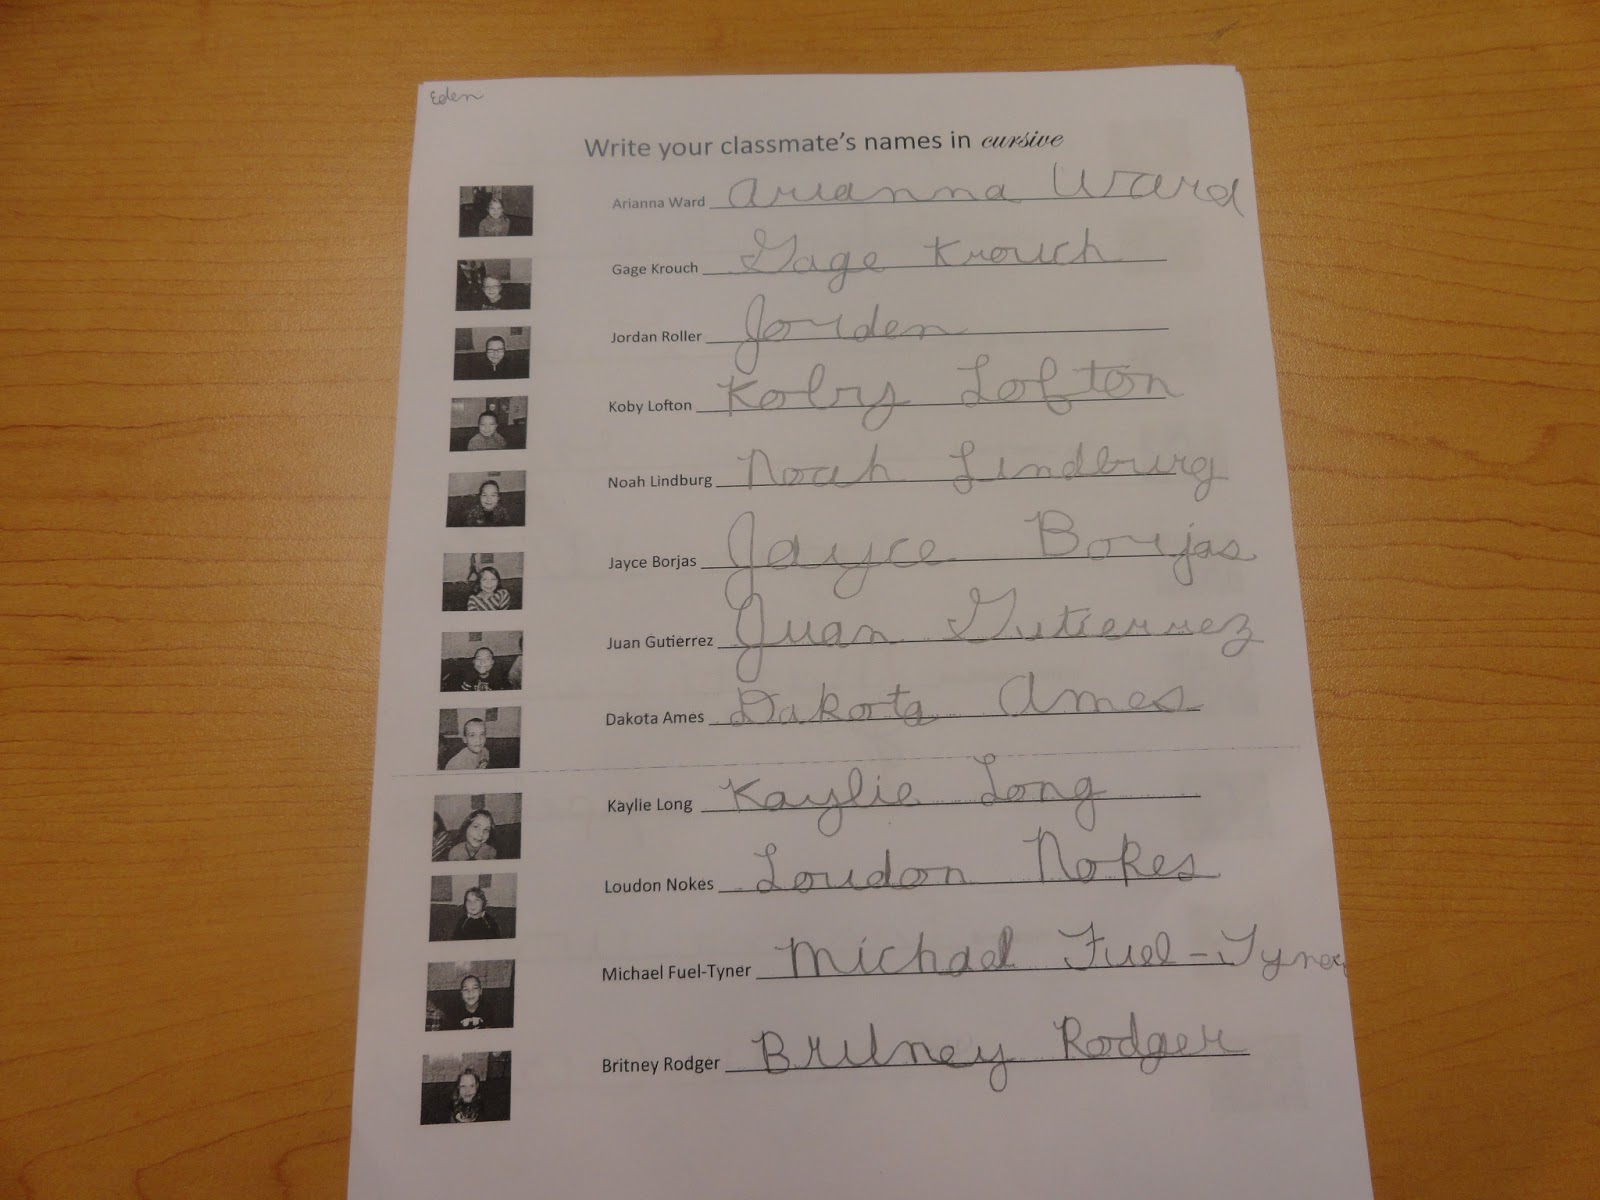 Eden
Write your classmate's names in cursive
Arianna Ward Arianna Ward
Gage Krouch Gage Krouch
Jordan Roller Jorden
Koby Lofton Koby Lofton
Noah Lindburg Noah Lindburg
Jayce Borjas Jayce Borjas
Juan Gutierrez Juan Gutierrez
Dakota Ames Dakota Ames
Kaylie Long Kaylie Long
Loudon Nokes Loudon Nokes
Michael Fuel-Tyner Michael Fuel-Tyner
Britney Rodger Britney Rodger